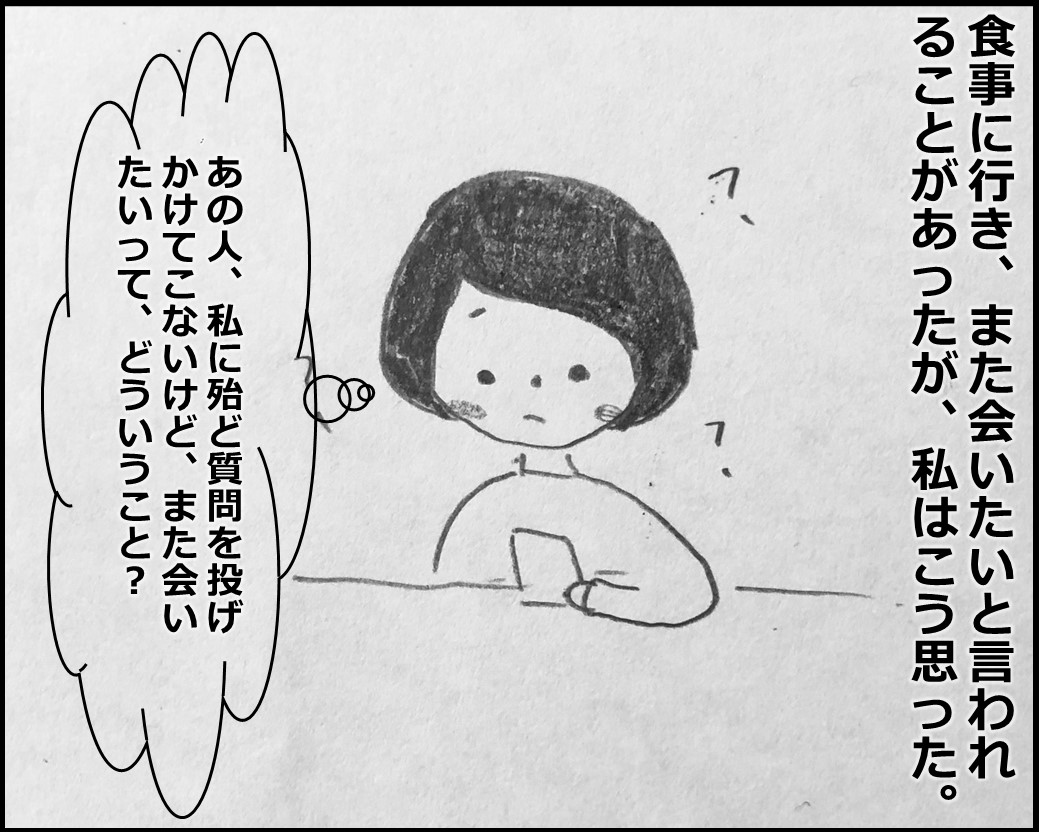 食事に行き、また会いたいと言われ
ることがあったが、私はこう思った。
?
?
あの人、私に殆ど質問を投げ
かけてこないけど、また会い
たいって、どういうこと?